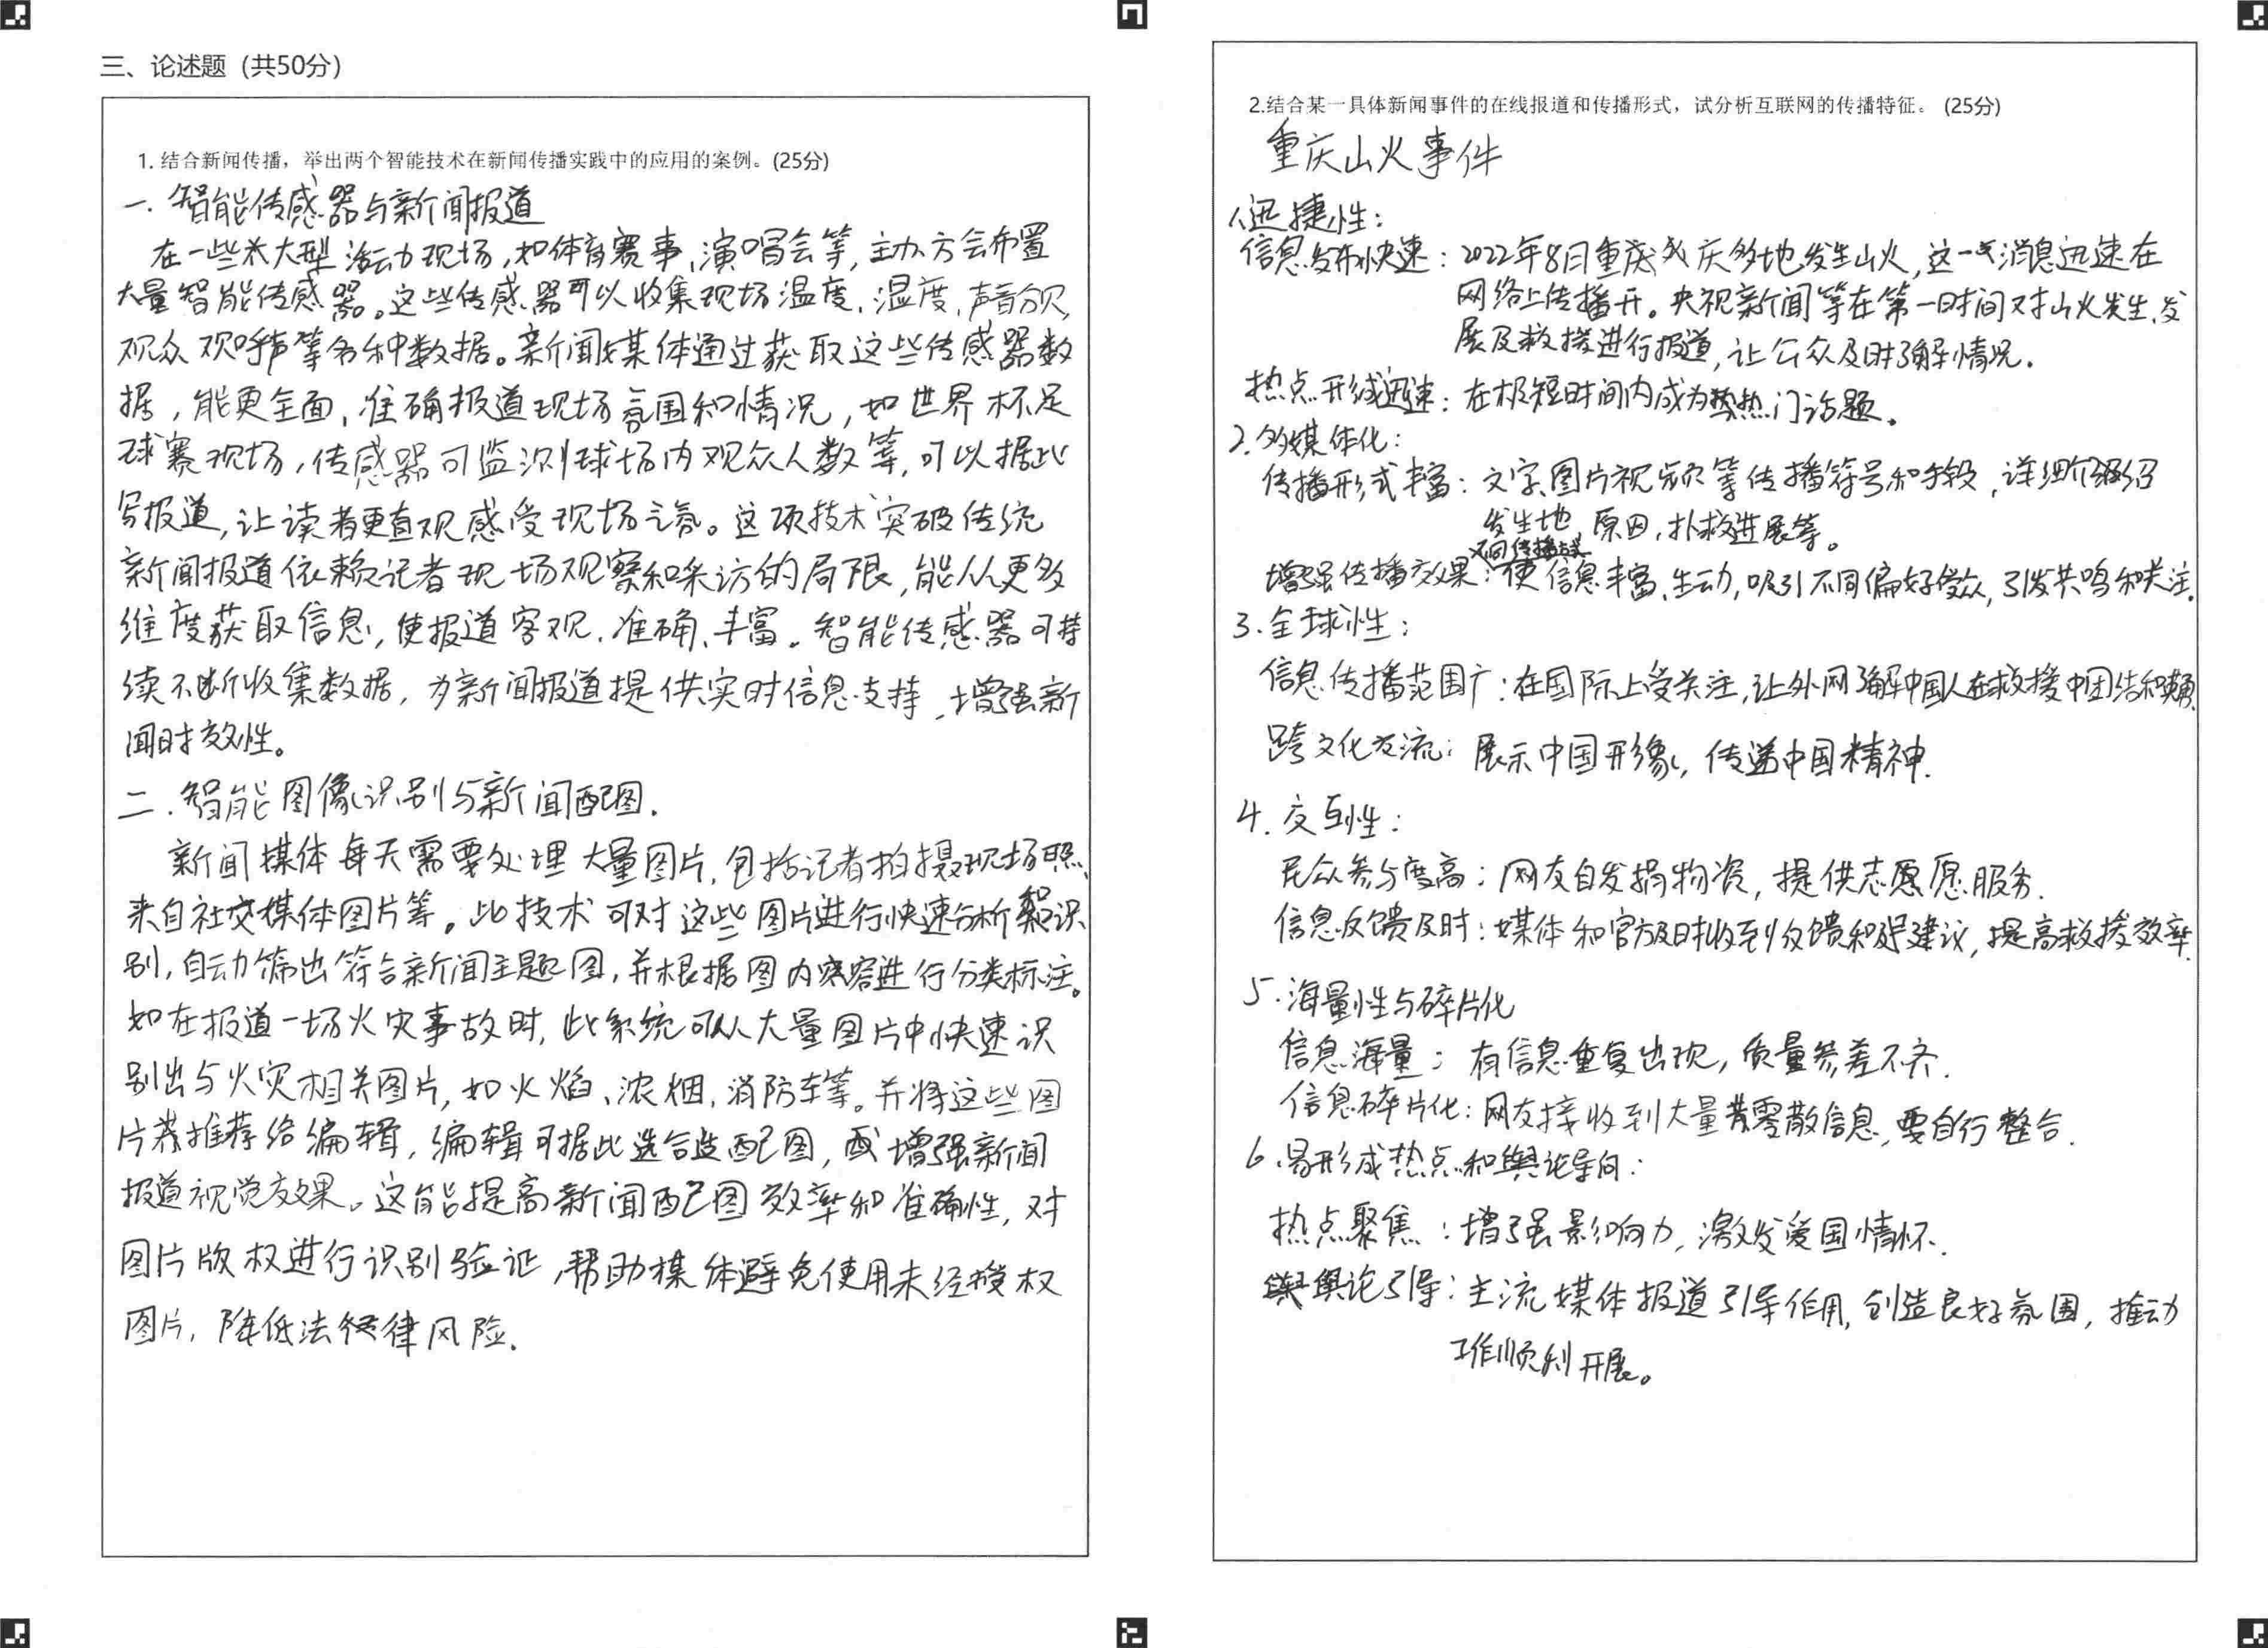 三、论述题（共50分）
1. 结合新闻传播，举出两个智能技术在新闻传播实践中的应用的案例。(25分)
一. 智能传感器与新闻报道
在一些大型活动现场，如体育赛事、演唱会等，主办方会布置
大量智能传感器。这些传感器可以收集现场温度、湿度、声音分贝、
观众欢呼声等多种数据。新闻媒体通过获取这些传感器数
据，能更全面、准确报道现场氛围和情况，如世界杯足
球赛现场，传感器可监测球场内观众人数等，可以据此
写报道，让读者更直观感受现场之氛。这项技术突破传统
新闻报道依赖记者现场观察和采访的局限，能从更多
维度获取信息，使报道客观、准确、丰富。智能传感器可持
续不断收集数据，为新闻报道提供实时信息支持，增强新
闻时效性。
二. 智能图像识别与新闻配图.
新闻媒体每天需要处理大量图片，包括记者拍摄现场照、
来自社交媒体图片等。此技术可对这些图片进行快速分析识
别，自动筛出符合新闻主题图，并根据图内容进行分类标注。
如在报道一场火灾事故时，此系统可从大量图片中快速识
别出与火灾相关图片，如火焰、浓烟、消防车等。并将这些图
片推荐给编辑，编辑可据此选合适配图，增强新闻
报道视觉效果。这能提高新闻配图效率和准确性，对
图片版权进行识别验证，帮助媒体避免使用未经授权
图片，降低法律风险.
2.结合某一具体新闻事件的在线报道和传播形式，试分析互联网的传播特征。 (25分)
重庆山火事件
1.迅捷性：
信息发布快速：2022年8月重庆多地发生山火，这一消息迅速在
网络上传播开。央视新闻等在第一时间对山火发生、发
展及救援进行报道，让公众及时了解情况.
热点形成迅速：在极短时间内成为热门话题。
2.多媒体化：
传播形式丰富：文字、图片视频等传播符号和手段，详细介绍
发生地、原因、扑救进展等。
不同传播方式
增强传播效果：使信息丰富、生动，吸引不同偏好受众，引发共鸣和关注.
3.全球性：
信息传播范围广：在国际上受关注，让外网了解中国人在救援中团结和勇.
跨文化交流：展示中国形像，传递中国精神.
4. 交互性：
民众参与度高：网友自发捐物资，提供志愿服务.
信息反馈及时：媒体和官方及时收到反馈和建议，提高救援效率.
5.海量性与碎片化
信息海量：有信息重复出现，质量参差不齐.
信息碎片化：网友接收到大量零散信息，要自行整合.
6.易形成热点和舆论导向：
热点聚焦：增强影响力，激发爱国情怀.
舆论引导：主流媒体报道引导作用，创造良好氛围，推动
工作顺利开展。